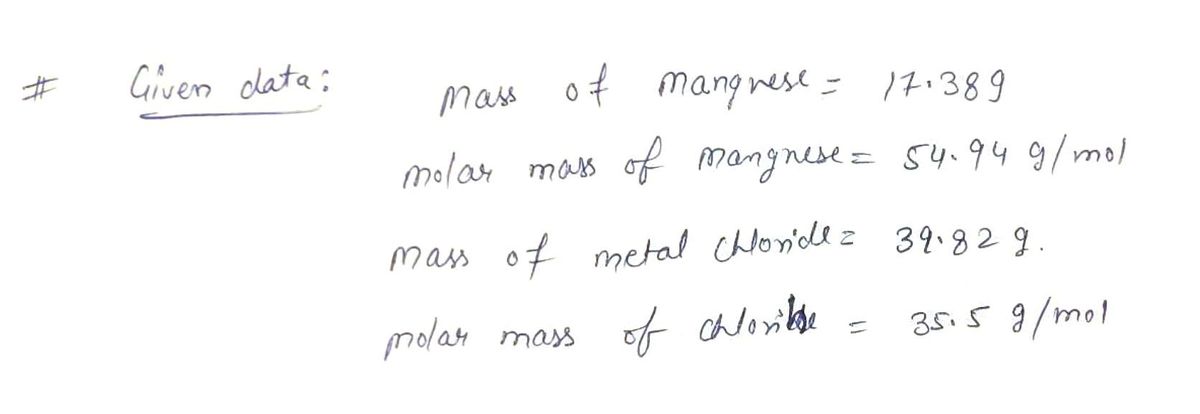 # Given data: Mass of mangnese = 17.38g
molar mass of mangnese = 54.94 g/mol
Mass of metal chloride = 39.82 g.
molar mass of chloride = 35.5 g/mol